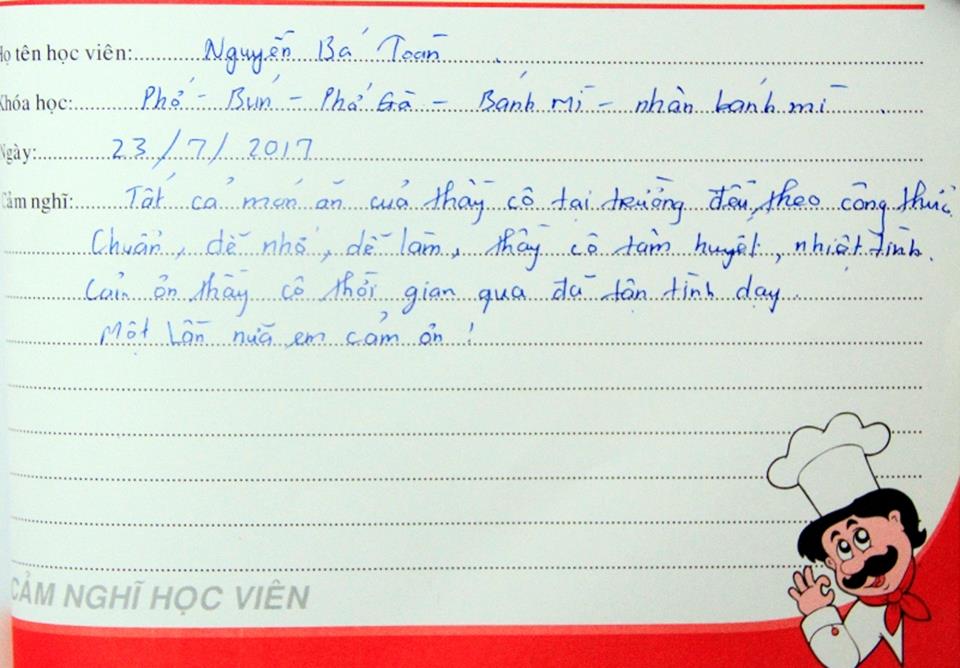 Họ tên học viên: Nguyễn Bá Toàn.
Khóa học: Phở - Bún - Phở Gà - Bánh mì - nhân bánh mì.
Ngày: 23/7/2017
Cảm nghĩ: Tất cả món ăn của thầy cô tại trường đều theo công thức
Chuẩn, dễ nhớ, dễ làm, thầy cô tâm huyết, nhiệt tình.
Cảm ơn thầy cô thời gian qua đã tận tình dạy.
Một lần nữa em cảm ơn!
CẢM NGHĨ HỌC VIÊN